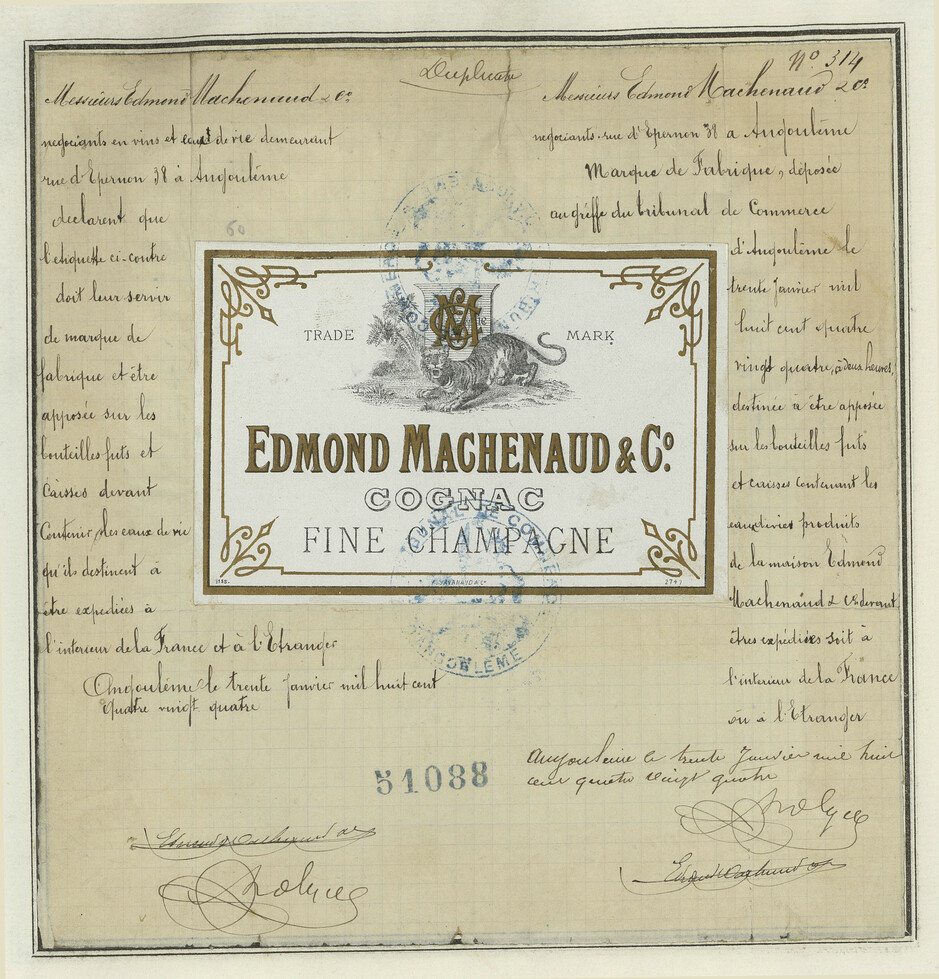 Nº 314
Duplicata
Messieurs Edmond Machenaud & Cº
negociants en vins et eaux de vie demeurant
rue d'Epernon 38 à Angoulême
declarent que
l'etiquette ci-contre
doit leur servir
de marque de
fabrique et être
apposée sur les
bouteilles futs et
Caisses devant
Contenir les eaux de vie
qu'ils destinent à
être expediées à
l'interieur de la France et à l'Etranger
Angoulême le trente Janvier mil huit cent
quatre vingt quatre
Messieurs Edmond Machenaud & Cº
negociants rue d'Epernon 38 a Angoulême
Marque de Fabrique, déposée
au gréffe du tribunal de Commerce
d'Angoulême le
trente Janvier mil
huit cent quatre
vingt quatre, à deux heures,
destinée à être apposée
sur les bouteilles futs
et caisses contenant les
eaux de vies produits
de la maison Edmond
Machenaud & Cº devant
êtres expédiées soit à
l'interieur de la France
ou à l'Etranger
Angoulême le trente Janvier mil huit
cent quatre vingt quatre
60
TRADE MARK
EDMOND MACHENAUD & Cº.
COGNAC
FINE CHAMPAGNE
TRIBUNAL DE COMMERCE
ANGOULÊME
51088
Edmond Machenaud & Cº
Edmond Machenaud & Cº